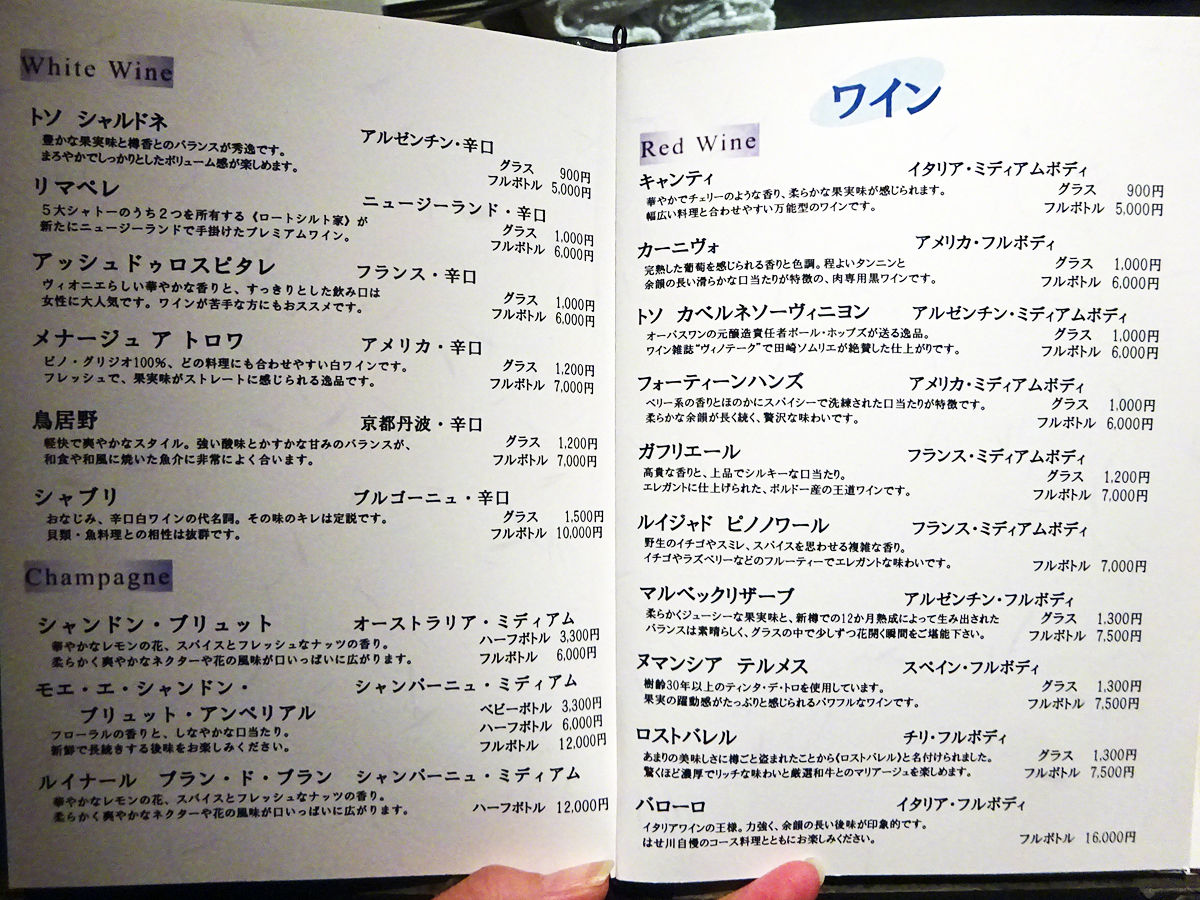 White Wine
トソ シャルドネ
アルゼンチン・辛口
豊かな果実味と樽香とのバランスが秀逸です。
まろやかでしっかりとしたボリューム感が楽しめます。
グラス 900円
フルボトル 5,000円
リマペレ
ニュージーランド・辛口
5大シャトーのうち2つを所有する《ロートシルト家》が
新たにニュージーランドで手掛けたプレミアムワイン。
グラス 1,000円
フルボトル 6,000円
アッシュドゥロスピタレ
フランス・辛口
ヴィオニエらしい華やかな香りと、すっきりとした飲み口は
女性に大人気です。ワインが苦手な方にもおススメです。
グラス 1,000円
フルボトル 6,000円
メナージュ ア トロワ
アメリカ・辛口
ピノ・グリジオ100%、どの料理にも合わせやすい白ワインです。
フレッシュで、果実味がストレートに感じられる逸品です。
グラス 1,200円
フルボトル 7,000円
鳥居野
京都丹波・辛口
軽快で爽やかなスタイル。強い酸味とかすかな甘みのバランスが、
和食や和風に焼いた魚介に非常によく合います。
グラス 1,200円
フルボトル 7,000円
シャブリ
ブルゴーニュ・辛口
おなじみ、辛口白ワインの代名詞。その味のキレは定説です。
貝類・魚料理との相性は抜群です。
グラス 1,500円
フルボトル 10,000円
Champagne
シャンドン・ブリュット
オーストラリア・ミディアム
華やかなレモンの花、スパイスとフレッシュなナッツの香り。
柔らかく爽やかなネクターや花の風味が口いっぱいに広がります。
ハーフボトル 3,300円
フルボトル 6,000円
モエ・エ・シャンドン・
シャンパーニュ・ミディアム
ブリュット・アンペリアル
フローラルの香りと、しなやかな口当たり。
新鮮で長続きする後味をお楽しみください。
ベビーボトル 3,300円
ハーフボトル 6,000円
フルボトル 12,000円
ルイナール ブラン・ド・ブラン
シャンパーニュ・ミディアム
華やかなレモンの花、スパイスとフレッシュなナッツの香り。
柔らかく爽やかなネクターや花の風味が口いっぱいに広がります。
ハーフボトル 12,000円
ワイン
Red Wine
キャンティ
イタリア・ミディアムボディ
華やかでチェリーのような香り、柔らかな果実味が感じられます。
幅広い料理と合わせやすい万能型のワインです。
グラス 900円
フルボトル 5,000円
カーニヴォ
アメリカ・フルボディ
完熟した葡萄を感じられる香りと色調。程よいタンニンと
余韻の長い滑らかな口当たりが特徴の、肉専用黒ワインです。
グラス 1,000円
フルボトル 6,000円
トソ カベルネソーヴィニヨン
アルゼンチン・ミディアムボディ
オーパスワンの元醸造責任者ポール・ホッブズが送る逸品。
ワイン雑誌"ヴィノテーク"で田崎ソムリエが絶賛した仕上がりです。
グラス 1,000円
フルボトル 6,000円
フォーティーンハンズ
アメリカ・ミディアムボディ
ベリー系の香りとほのかにスパイシーで洗練された口当たりが特徴です。
柔らかな余韻が長く続く、贅沢な味わいです。
グラス 1,000円
フルボトル 6,000円
ガフリエール
フランス・ミディアムボディ
高貴な香りと、上品でシルキーな口当たり。
エレガントに仕上げられた、ボルドー産の王道ワインです。
グラス 1,200円
フルボトル 7,000円
ルイジャド ピノノワール
フランス・ミディアムボディ
野生のイチゴやスミレ、スパイスを思わせる複雑な香り。
イチゴやラズベリーなどのフルーティーでエレガントな味わいです。
フルボトル 7,000円
マルベックリザーブ
アルゼンチン・フルボディ
柔らかくジューシーな果実味と、新樽での12か月熟成によって生み出された
バランスは素晴らしく、グラスの中で少しずつ花開く瞬間をご堪能下さい。
グラス 1,300円
フルボトル 7,500円
ヌマンシア テルメス
スペイン・フルボディ
樹齢30年以上のティンタ・デ・トロを使用しています。
果実の躍動感がたっぷりと感じられるパワフルなワインです。
グラス 1,300円
フルボトル 7,500円
ロストバレル
チリ・フルボディ
あまりの美味しさに樽ごと盗まれたことから《ロストバレル》と名付けられました。
驚くほど濃厚でリッチな味わいと厳選和牛とのマリアージュを楽しめます。
グラス 1,300円
フルボトル 7,500円
バローロ
イタリア・フルボディ
イタリアワインの王様。力強く、余韻の長い後味が印象的です。
はせ川自慢のコース料理とともにお楽しみください。
フルボトル 16,000円